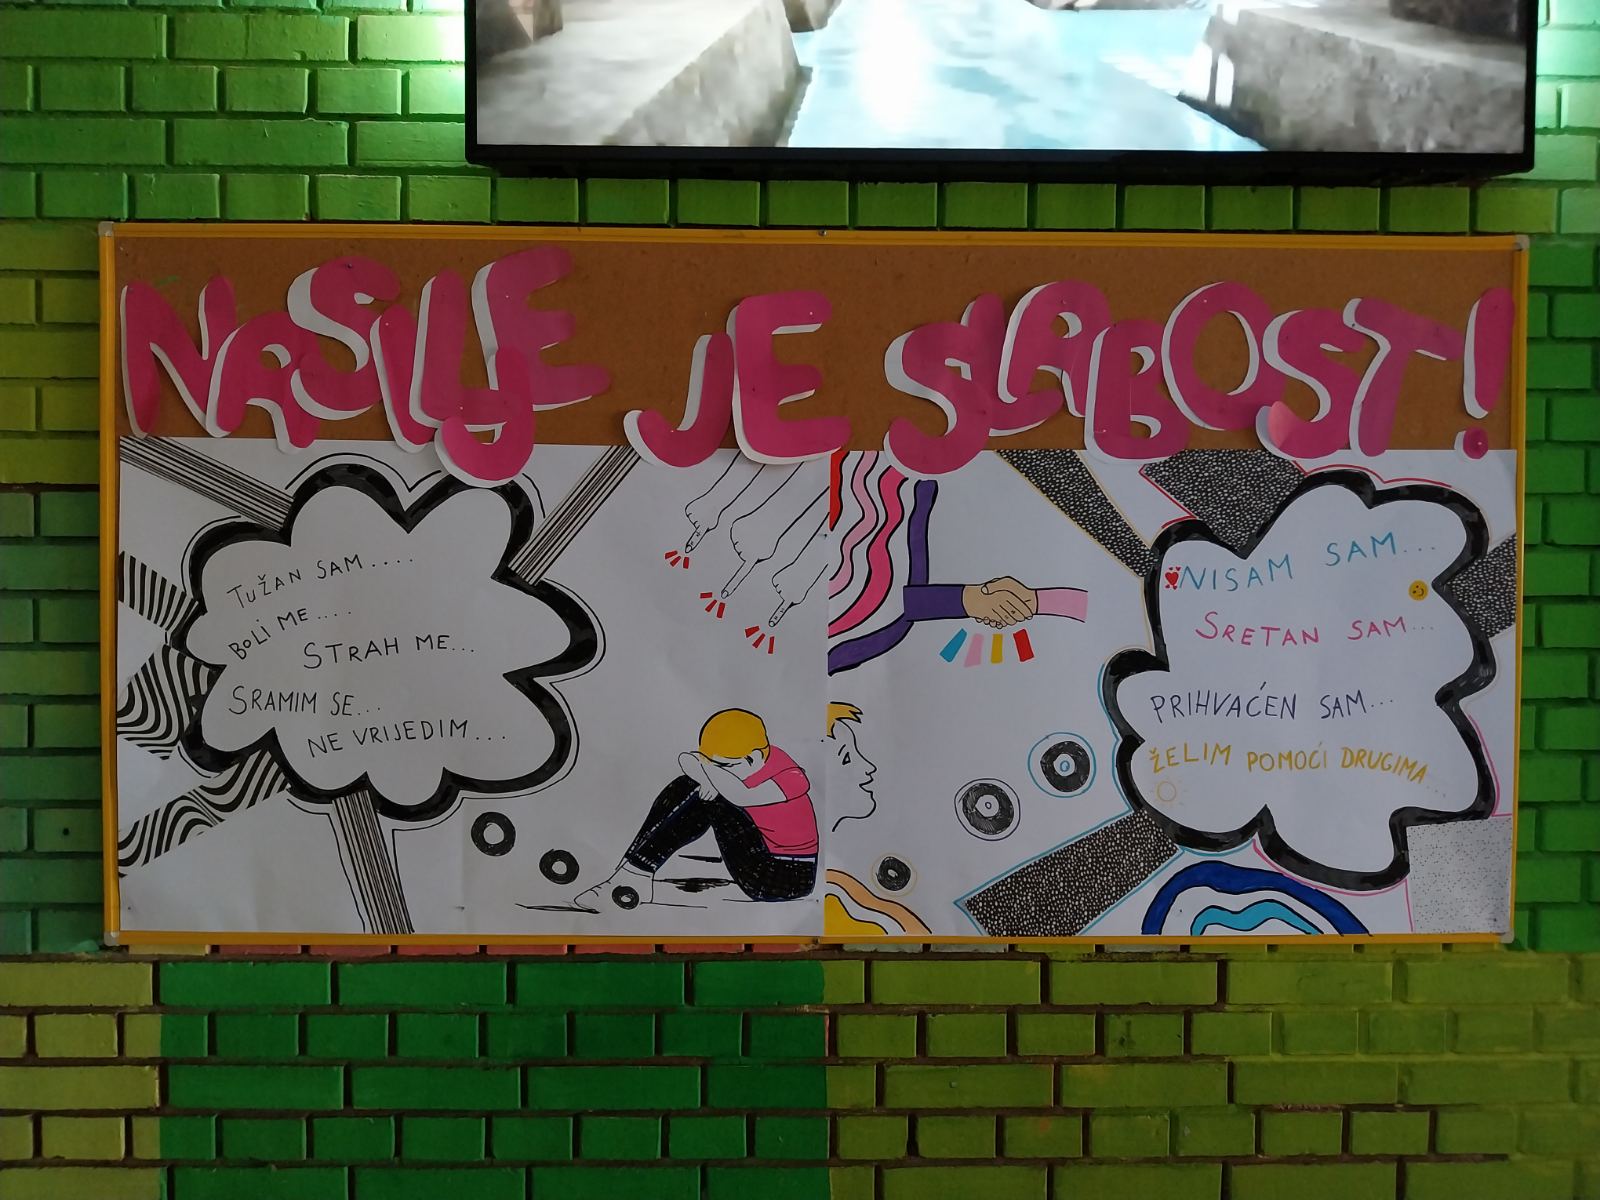 NASILJE JE SLABOST!
TUŽAN SAM....
BOLI ME....
STRAH ME...
SRAMIM SE...
NE VRIJEDIM...
NISAM SAM...
SRETAN SAM...
PRIHVAĆEN SAM...
ŽELIM POMOĆI DRUGIMA...